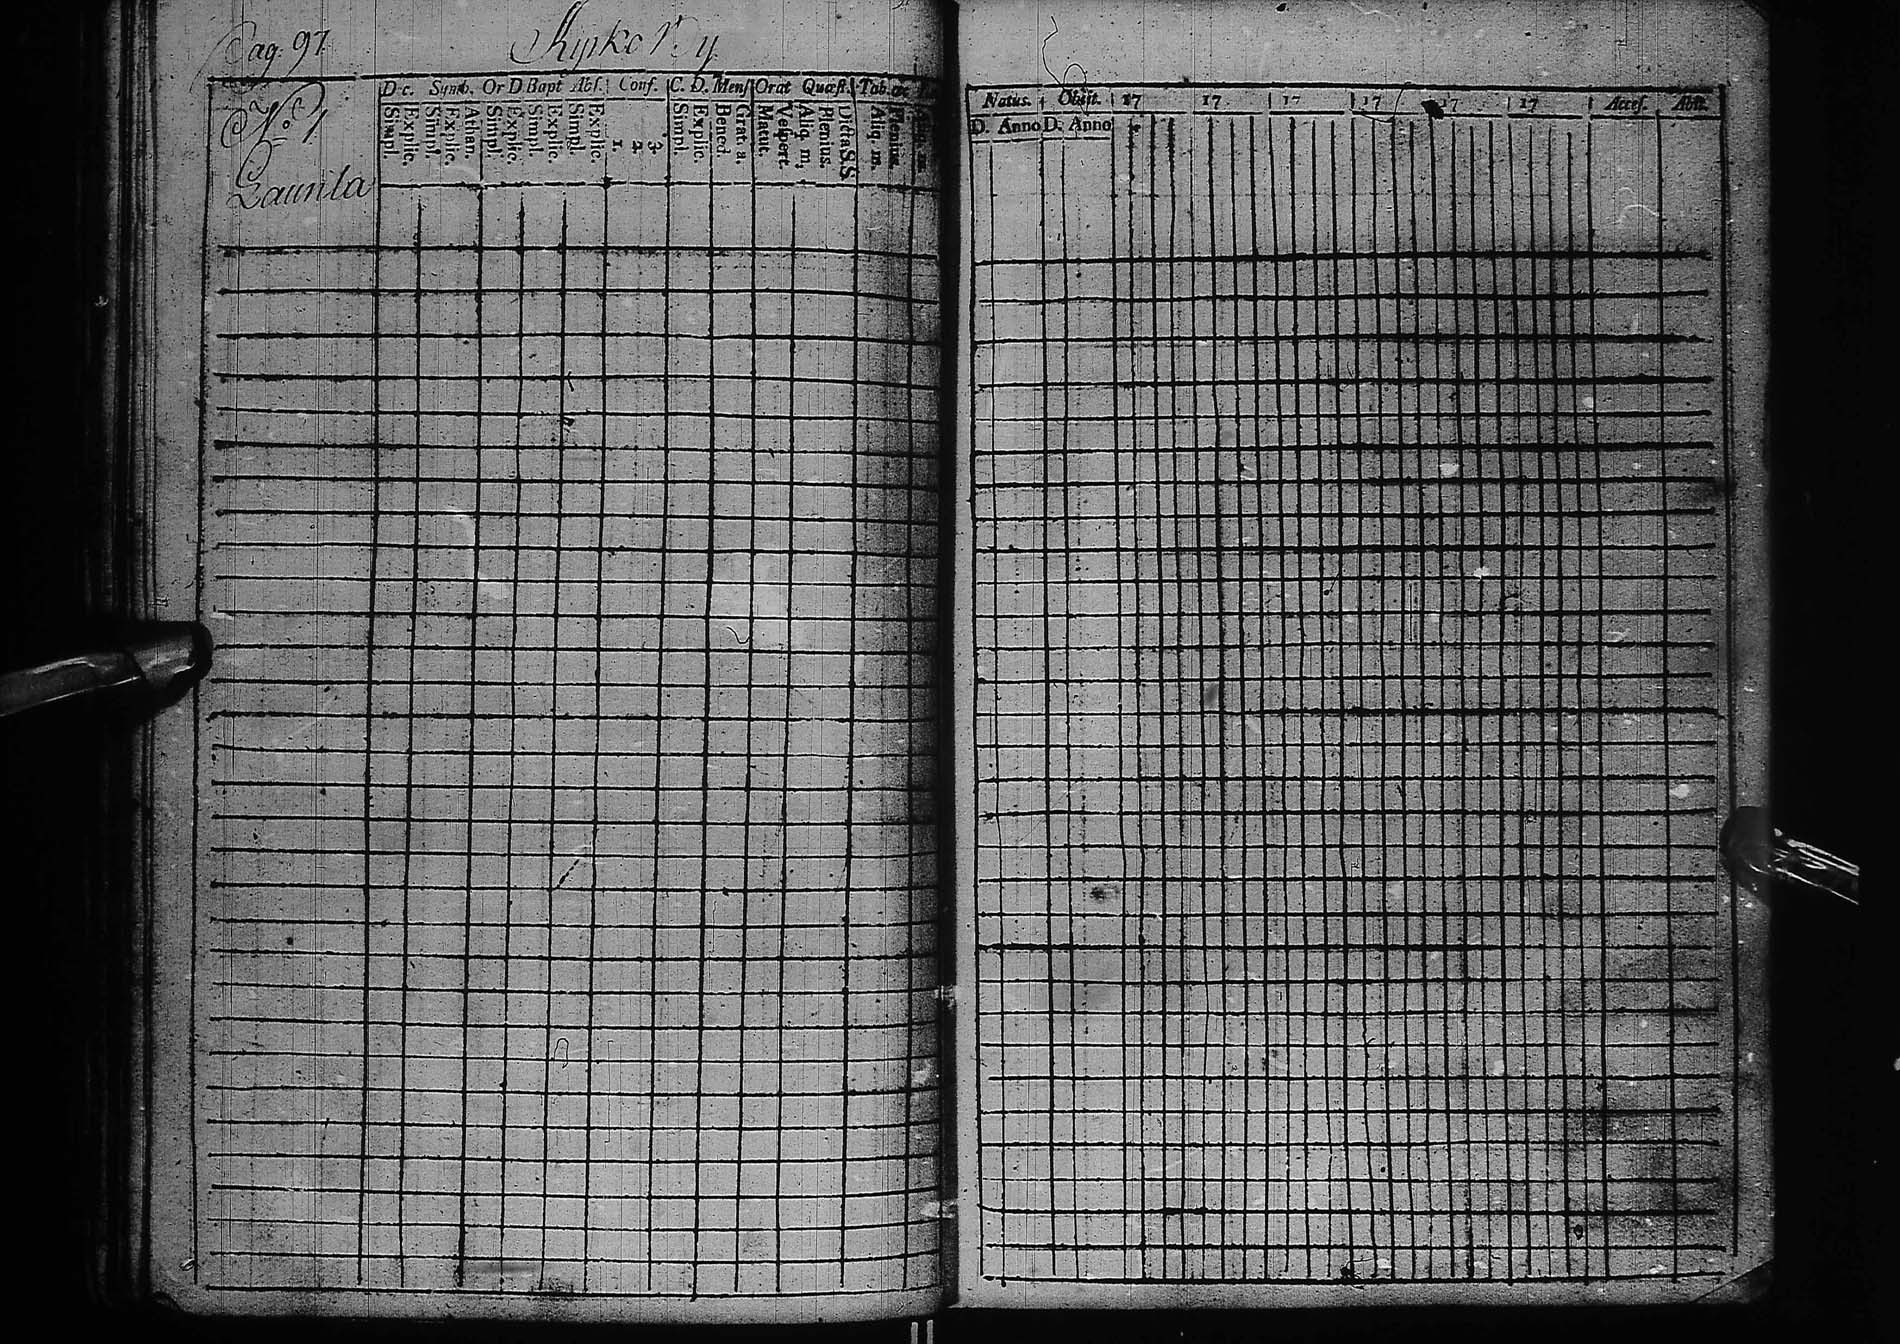 Pag. 97.
D c. Symb. Or D Bapt Abs. Conf. C. D. Mens Orat Quæst. Tab. œc
Simpl. Explic. Simpl. Explic. Athan. Simpl. Explic. Simpl. Explic. Simpl. Explic. 1. 2. 3. Simpl. Explic. Bened. Grat. a. Matut. Vespert. Aliq. m. Plenius. Dicta S.S. Aliq. m. Plenius.
No. 1
Launila
Natus. Obiit. 17 17 17 17 17 17 Access. Abit.
D. Anno D. Anno